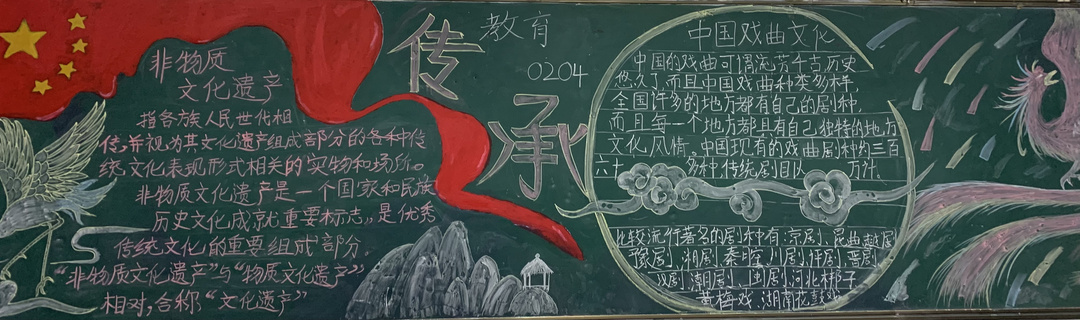 非物质
文化遗产
指各族人民世代相
传,并视为其文化遗产组成部分的各种传
统文化表现形式相关的实物和场所。
非物质文化遗产是一个国家和民族
历史文化成就重要标志,是优秀
传统文化的重要组成部分,
“非物质文化遗产”与“物质文化遗产”
相对,合称“文化遗产”
传承
教育
0204
中国戏曲文化
中国的戏曲可谓流芳千古历史
悠久了,而且中国戏曲种类多样,
全国许多的地方都有自己的剧种.
而且每一个地方都且有自己独特的地方
文化,风情。中国现有的戏曲剧种约三百
六十 多种,传统剧目以 万计.
比较流行著名的剧种有:京剧、昆曲越剧
豫剧、湘剧、秦腔、川剧、评剧、晋剧
汉剧、潮剧、闽剧、河北梆子
黄梅戏、湖南花鼓戏